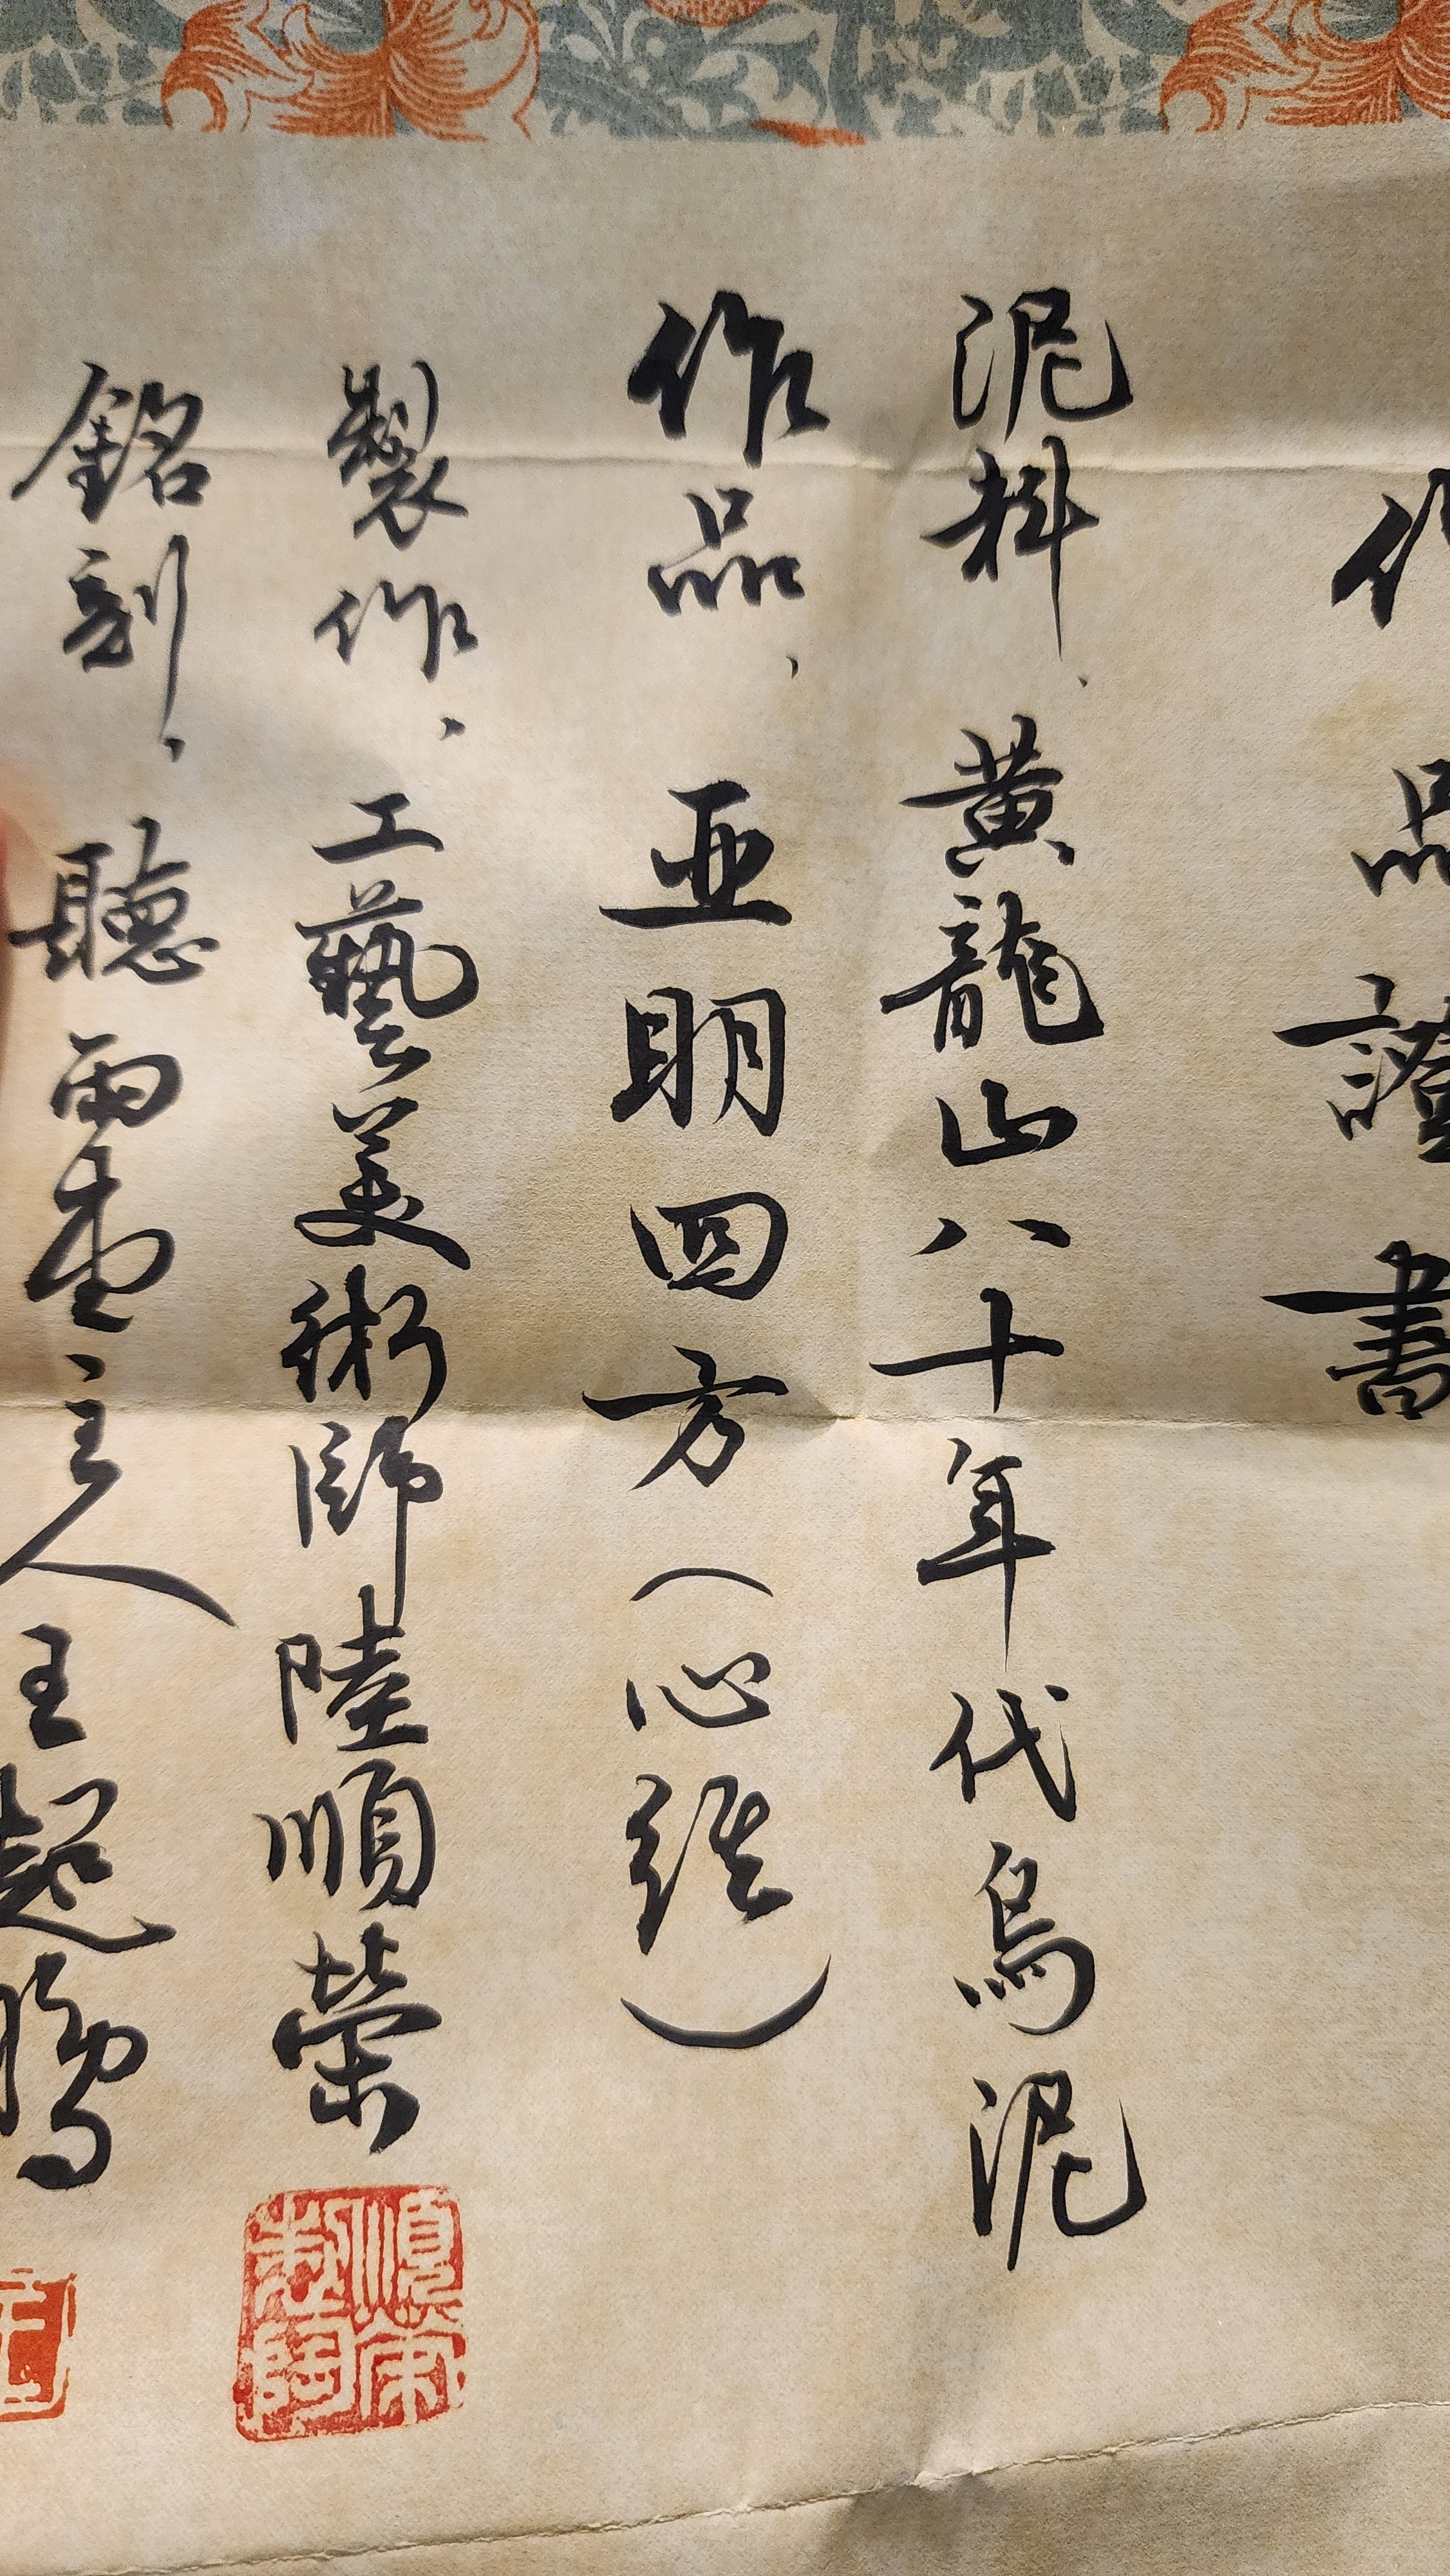 作品證書
泥料、黃龍山八十年代烏泥
作品、亚明四方（心經）
製作、工藝美術師陸順榮
銘刻、聽雨堂主人王起鵬
順榮壺藝